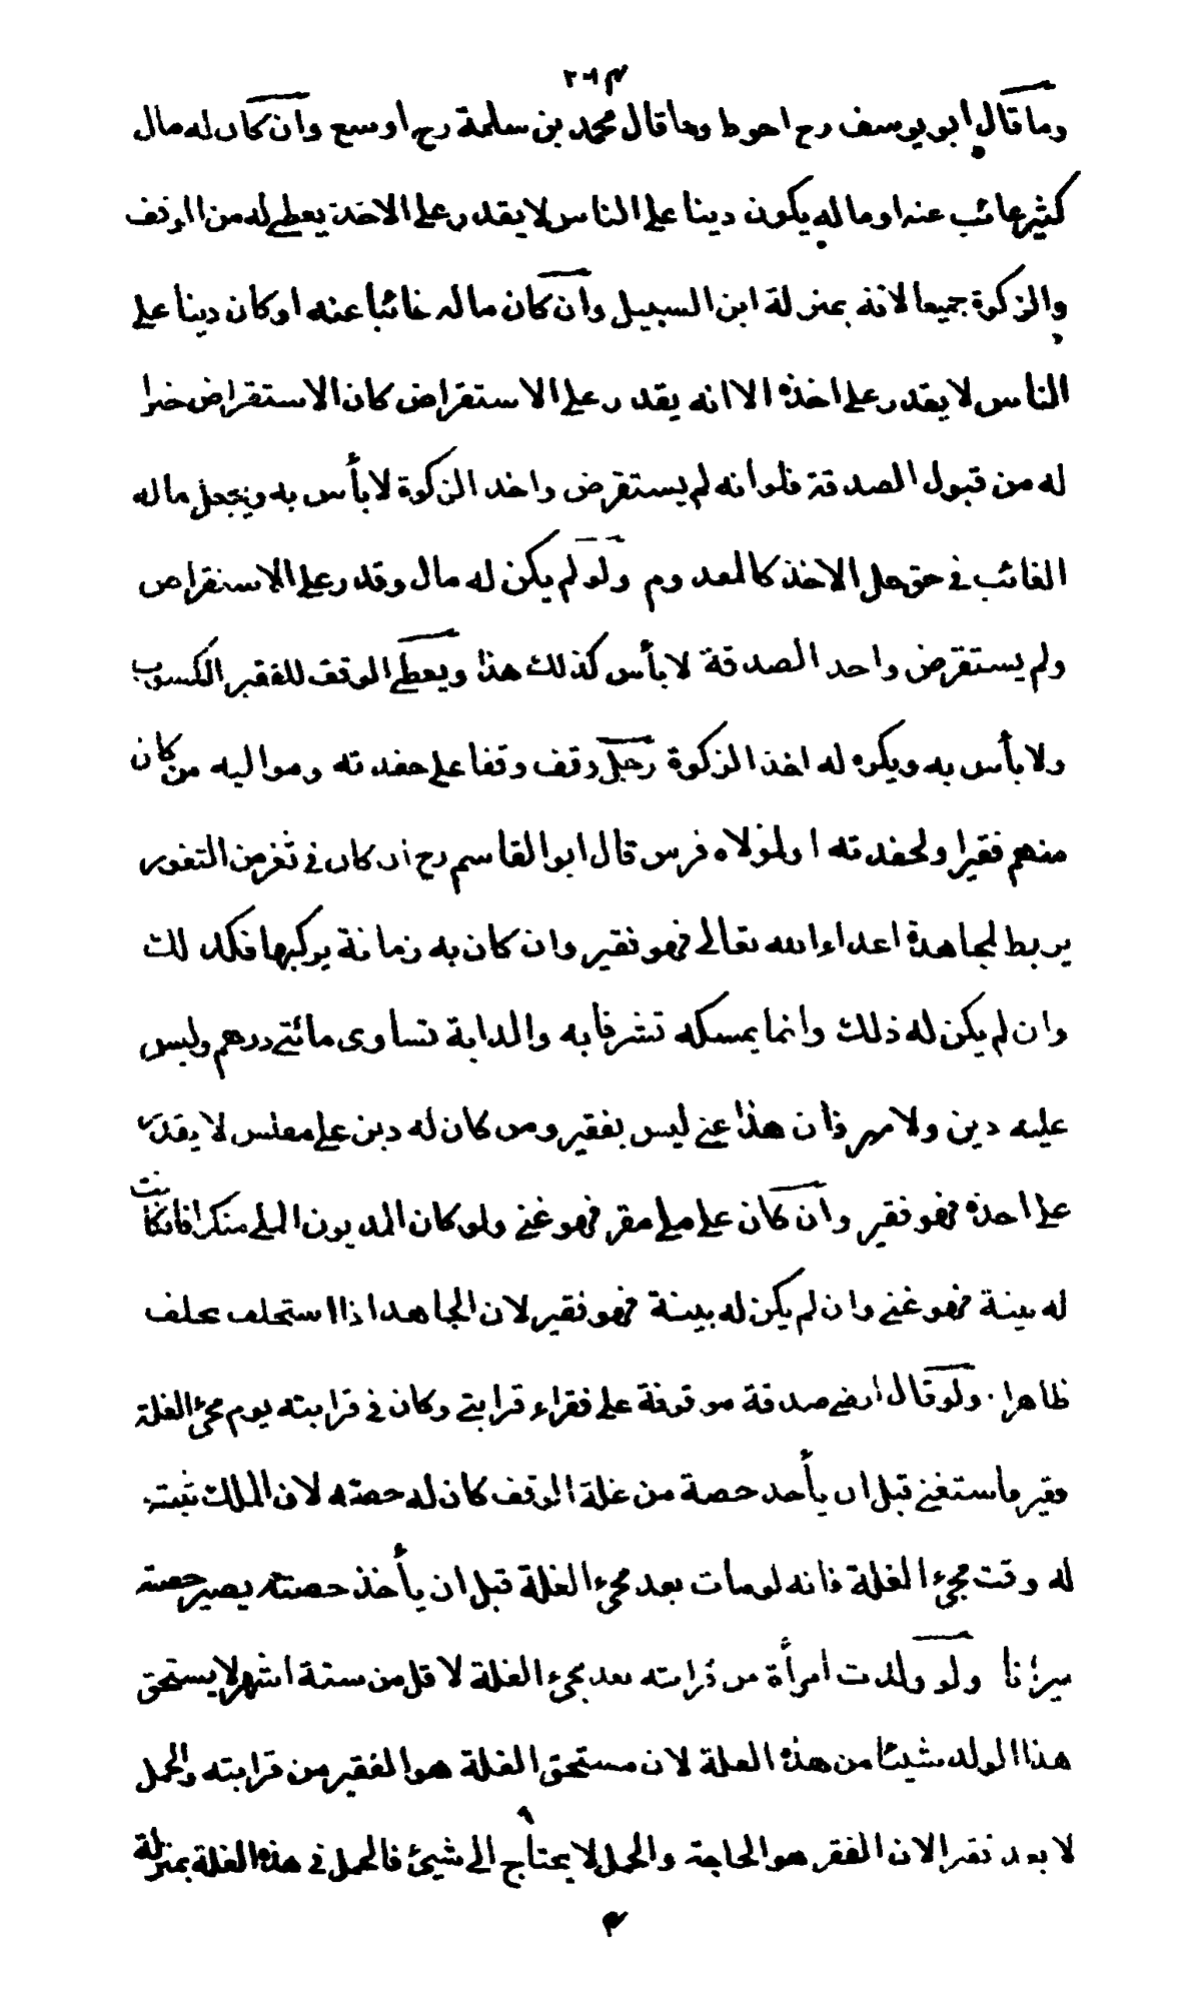 ٢٠١٣
وما قال ابو يوسف رح احوط وما قال محمد بن سلمة رح اوسع وان كان له مال
كثير غائب عنه او ماله يكون دينا على الناس لا يقدر على الاخذ يعطى له من الوقف
والزكوة جميعا لانه بمنزلة ابن السبيل وان كان ماله غائبا عنه او كان دينا على
الناس لا يقدر على اخذه الا انه يقدر على الاستقراض كان الاستقراض خيرا
له من قبول الصدقة فلو انه لم يستقرض واخذ الزكوة لا بأس به ويجعل ماله
الغائب في حق حل الاخذ كالمعدوم ولو لم يكن له مال وقدر على الاستقراض
ولم يستقرض واخذ الصدقة لا بأس كذلك هذا ويعطى الوقف للفقير الكسوب
ولا بأس به ويكره له اخذ الزكوة رجل وقف وقفا على حفدته ومواليه من كان
منهم فقيرا ولحفدته او لمولاه فرس قال ابو القاسم رح ان كان في ثغر من الثغور
يربط لمجاهدة اعداء الله تعالى فهو فقير وان كان به زمانة يركبها فكذلك
وان لم يكن له ذلك وانما يمسكه تشرفا به والدابة تساوى مائتى درهم وليس
عليه دين ولا مهر فان هذا غنى ليس بفقير ومن كان له دين على مفلس لا يقدر
على اخذه فهو فقير وان كان على ملى مقر فهو غنى ولو كان المديون الملى منكرا فان كانت
له بينة فهو غنى وان لم يكن له بينة فهو فقير لان الجاهد اذا استحلف يحلف
ظاهرا . ولو قال ارضى صدقة موقوفة على فقراء قرابتى وكان في قرابته يوم مجئ الغلة
فقير فاستغنى قبل ان يأخذ حصة من غلة الوقف كان له حصته لان الملك ثبت
له وقت مجيء الغلة فانه لو مات بعد مجيء الغلة قبل ان يأخذ حصته يصير حصته
ميراثا ولو ولدت امرأة من قرابته بعد مجيء الغلة لاقل من ستة اشهر لا يستحق
هذا الولد شيئا من هذه الغلة لان مستحق الغلة هو الفقير من قرابته والحمل
لا يعد فقيرا لان الفقر هو الحاجة والحمل لا يحتاج الى شيئ فالحمل في هذه الغلة بمنزلة